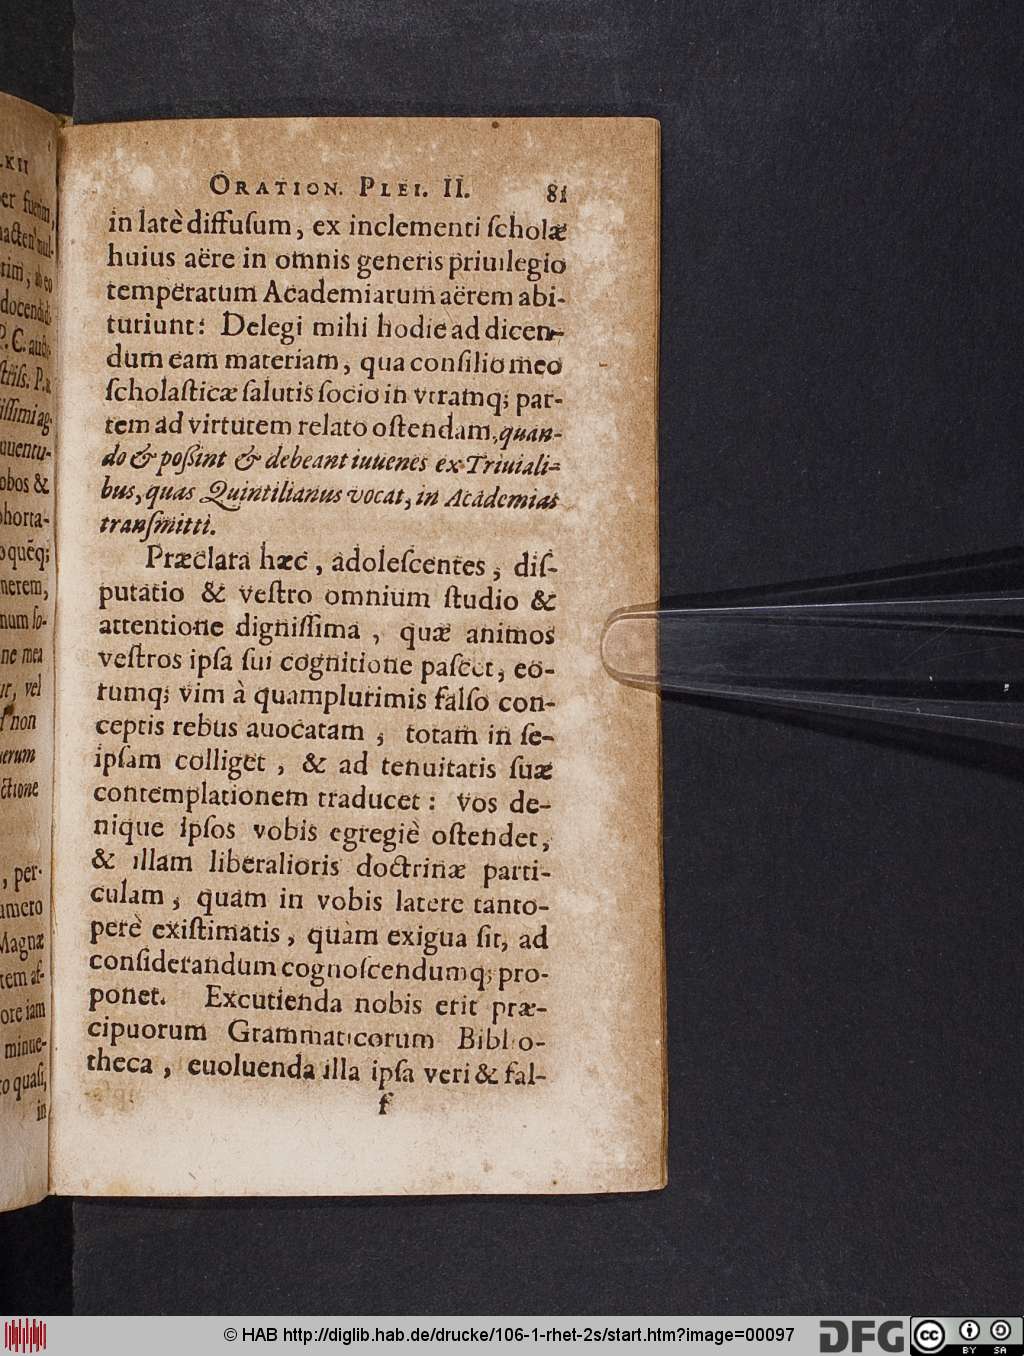 .KII
er fuerim,
hacten' mul-
docendi
P. C. audi
uuentu-
obos &
ohorta-
o quēq;
nerem,
num ſo-
ne mea
ur, vel
non
uerum
ctione
, per-
umero
Magnæ
tem aſ-
ore iam
minue-
to quaſi,
in
ORATION. PLEI. II. 81
in latè diffuſum, ex inclementi ſcholæ
huius aëre in omnis generis priuilegio
temperatum Academiarum aërem abi-
turiunt: Delegi mihi hodie ad dicen-
dum eam materiam, qua conſilio meo
ſcholaſticæ ſalutis ſocio in vtramq; par-
tem ad virtutem relato oſtendam, quan-
do & poßint & debeant iuuenes ex Triuiali-
bus, quas Quintilianus vocat, in Academias
tranſmitti.
Præclara hæc, adoleſcentes, diſ-
putatio & veſtro omnium ſtudio &
attentione digniſſima, quæ animos
veſtros ipſa ſui cognitione paſcet, eo-
rumq; vim à quamplurimis falſo con-
ceptis rebus auocatam, totam in ſe-
ipſam colliget, & ad tenuitatis ſuæ
contemplationem traducet: vos de-
nique ipſos vobis egregiè oſtendet,
& illam liberalioris doctrinæ parti-
culam, quam in vobis latere tanto-
perè exiſtimatis, quàm exigua ſit, ad
conſiderandum cognoſcendumq; pro-
ponet. Excutienda nobis erit præ-
cipuorum Grammaticorum Biblio-
theca, euoluenda illa ipſa veri & fal-
f
© HAB http://diglib.hab.de/drucke/106-1-rhet-2s/start.htm?image=00097
DFG
cc BY SA